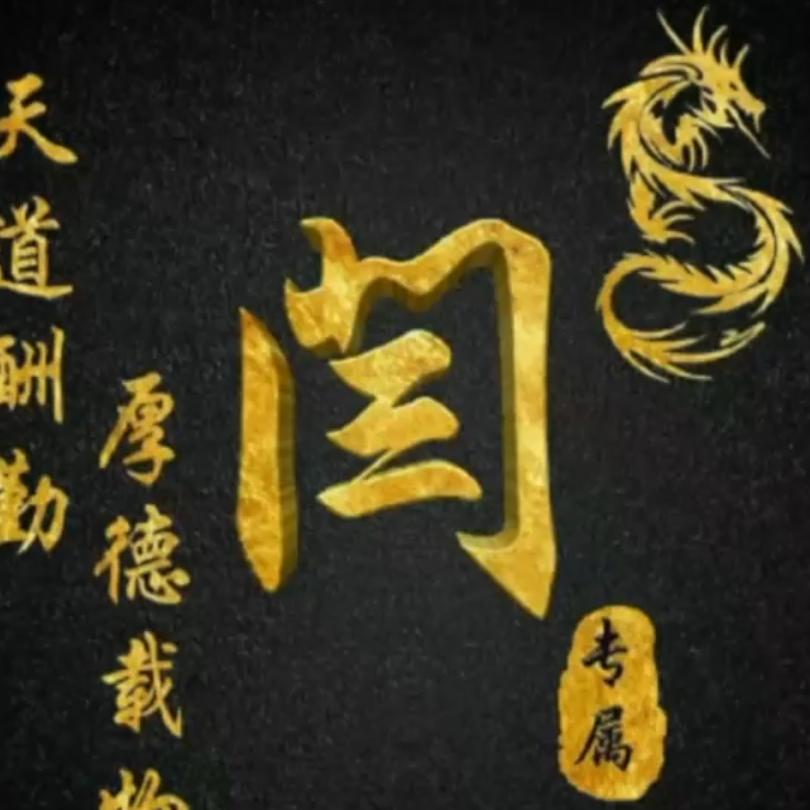 天道酬勤
厚德载物
闫
专属